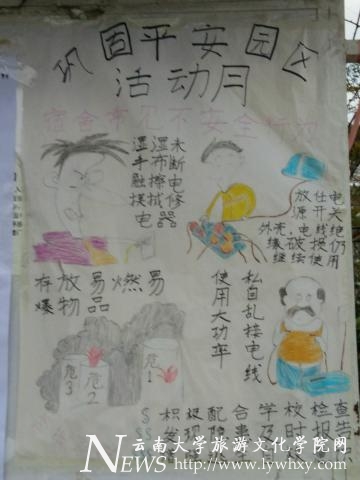 巩固平安园区
活动月
宿舍常见不安全行为
湿手触摸电
湿布擦拭电器
未断电修
放任电源开关
外壳,电线绝缘破损仍继续使用
存放易燃易
爆物品
使用大功率
私自乱接电线
危3
危2
危1
积极配合学校检查
NEWS
云南大学旅游文化学院网
http://www.lywhxy.com